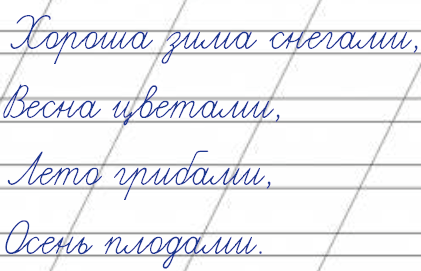 Хороша зима снегами,
Весна цветами,
Лето грибами,
Осень плодами.